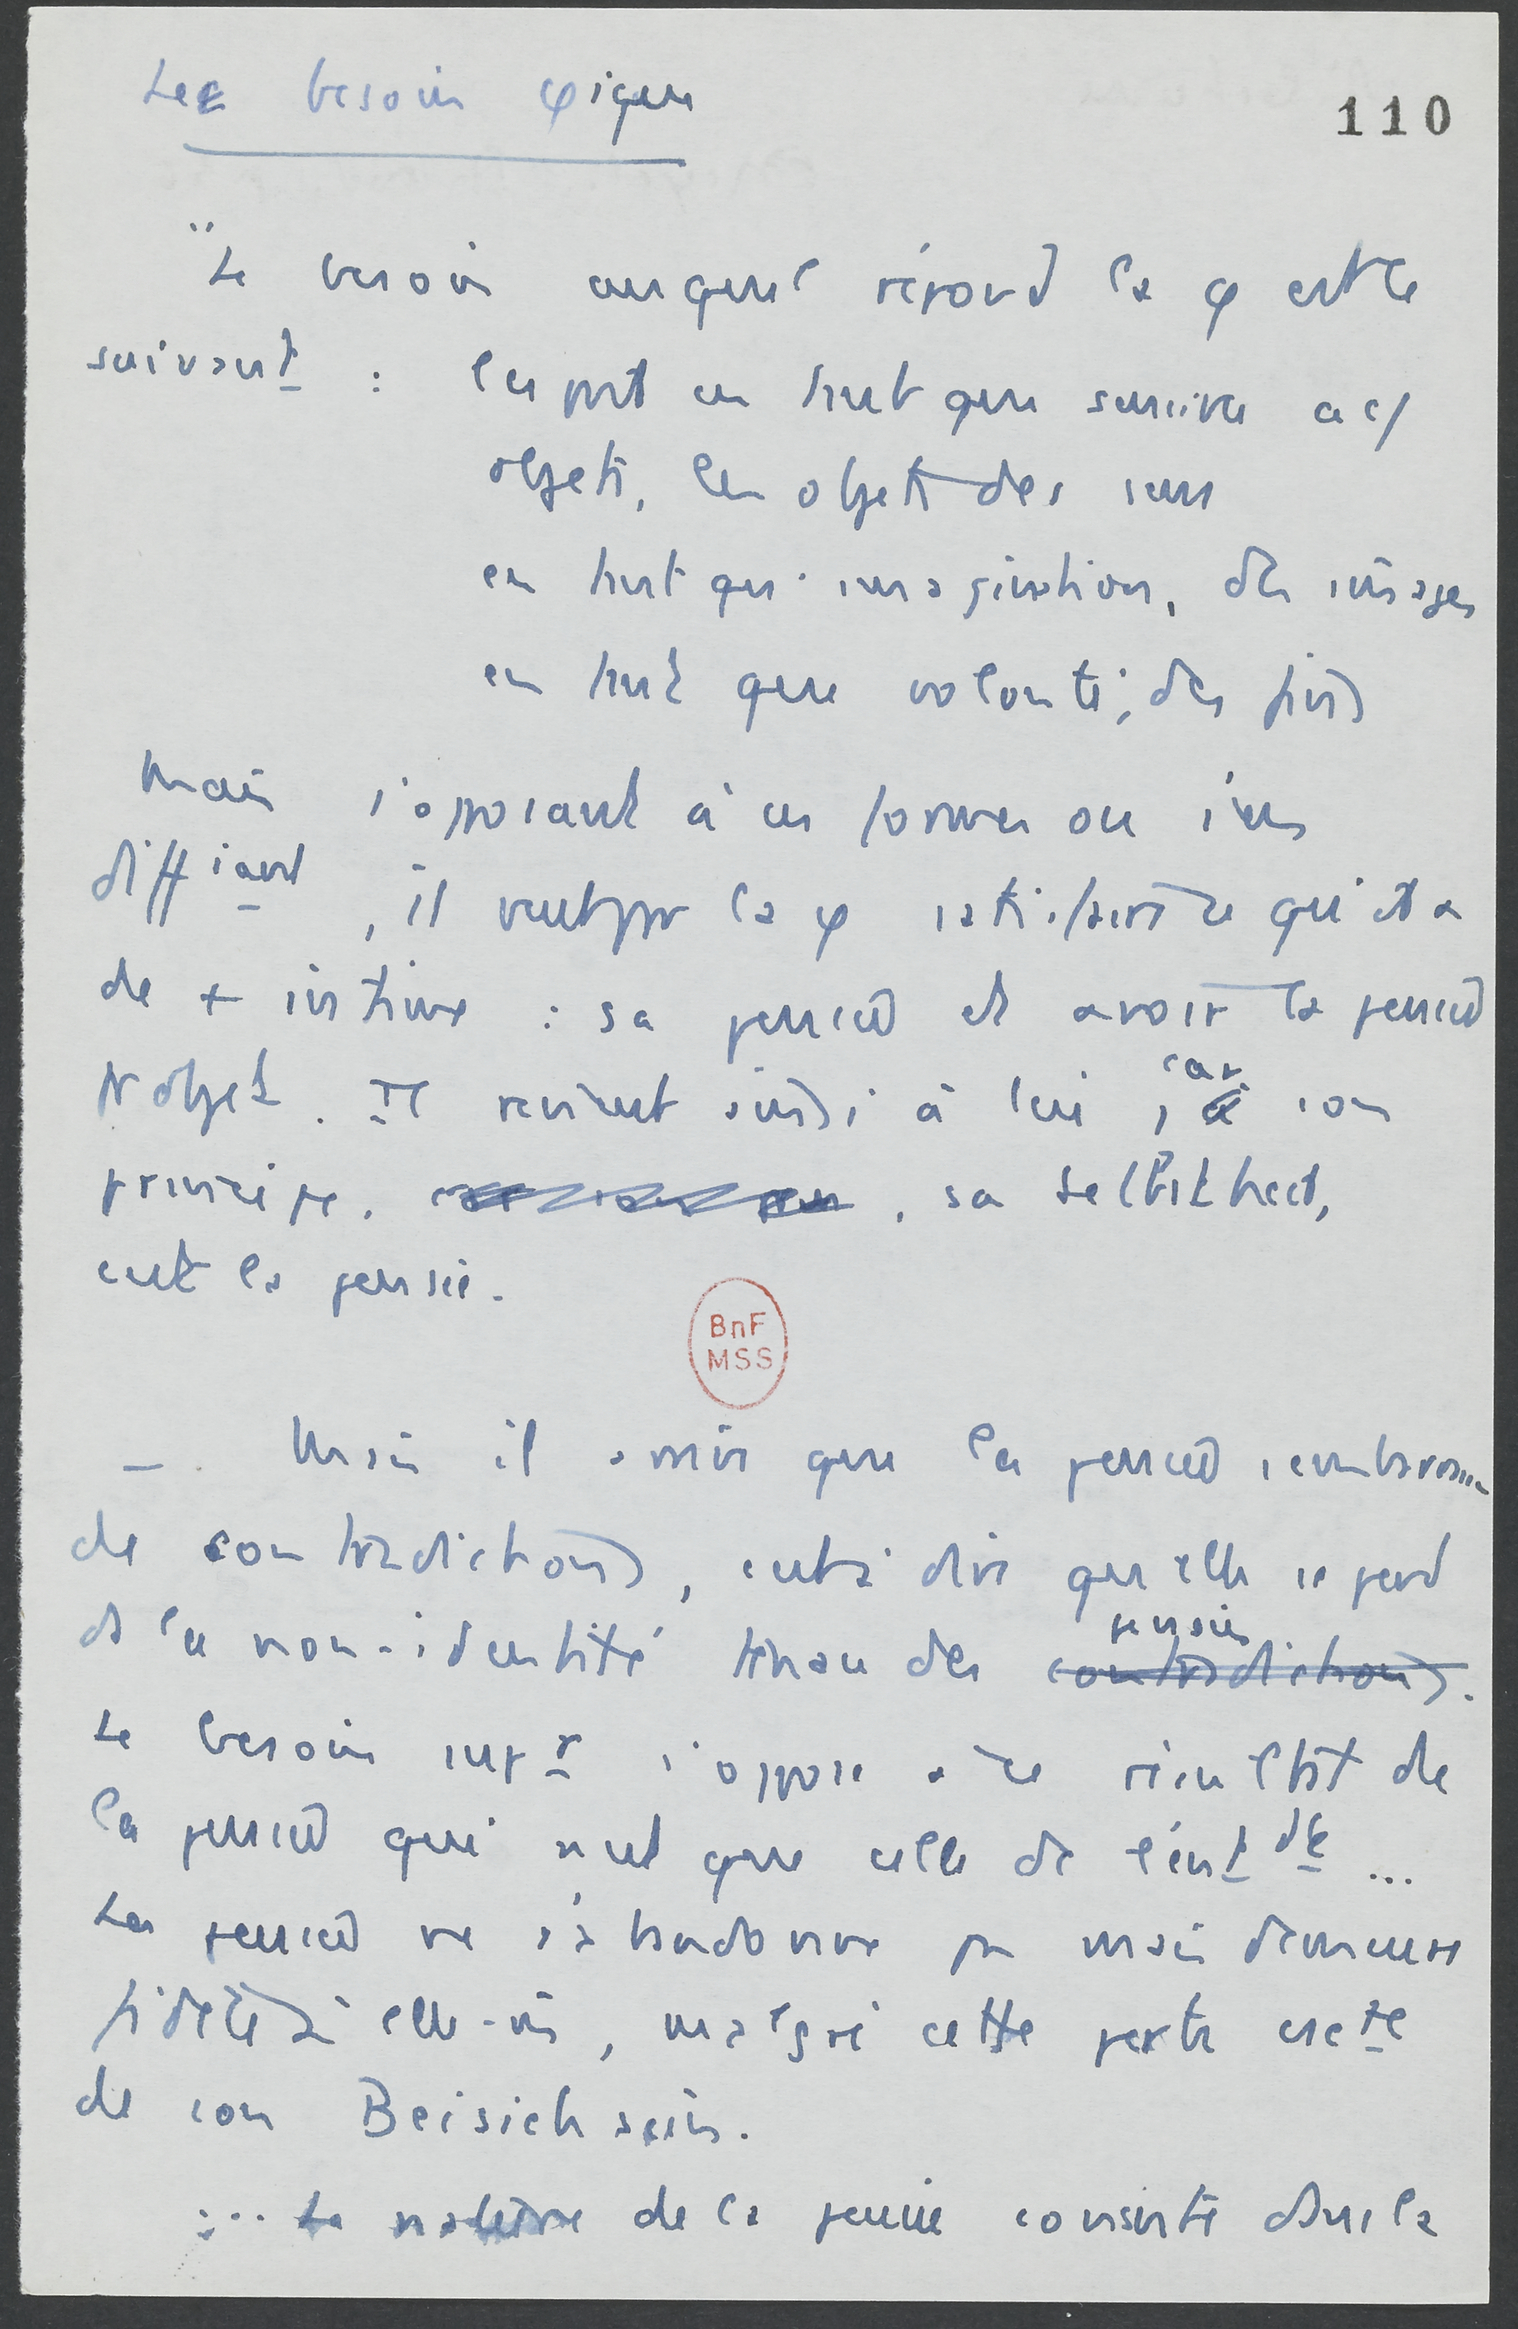 Le besoin φique
110
"Le besoin auquel répond la φ est le
suivant : l'esprit en tant que sensible a c/
objets, les objets des sens
en tant qu'imagination, des images
en tant que volonté, des fins
Mais s'opposant à ces formes ou s'en
diffiant, il veut pr la φ satisfaire ce qu'il a
de + intime : sa pensée et avoir la pensée
pr objet. Il revient ainsi à lui, car son
principe, sa Selbstheit,
c'est la pensée.
BnF
MSS
-. Mais il arrive que la pensée s'embarrasse
de contradictions, c'est à dire qu'elle se perd
ds la non-identité des pensées contradictions.
Le besoin supr s'oppose a ce résultat de
la pensée qui n'est que celle de l'ent dt ...
La pensée ne s'abandonne pas mais demeure
fidèle à elle-m, malgré cette perte
de son Beisichsein.
... La nature de la pensée consiste dans la